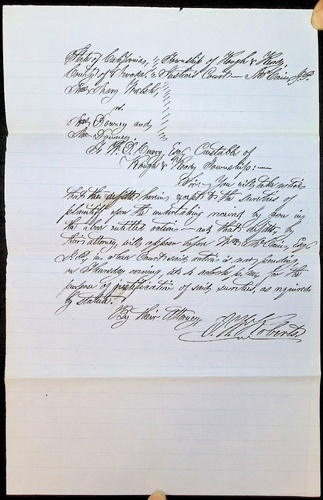 State of California, Township of Rough & Ready
County of Nevada Justice's Court — Wm McCain J.P.
vs.
Downey and
Downey.
To W. D. Esq. Constable of
Rough & Ready Township: —
Sir: You will take notice
that the defts having except to the sureties of
plaintiff upon the undertaking received by you in
the above entitled action — and that defts, by
their attorney will appear before Wm McCain, Esq.
J.P. in whose Court said action is now pending,
on Thursday evening, at 4 o'clock p.m. for the
purpose of justification of said sureties, as required
by statute.
By their Attorney
Roberts